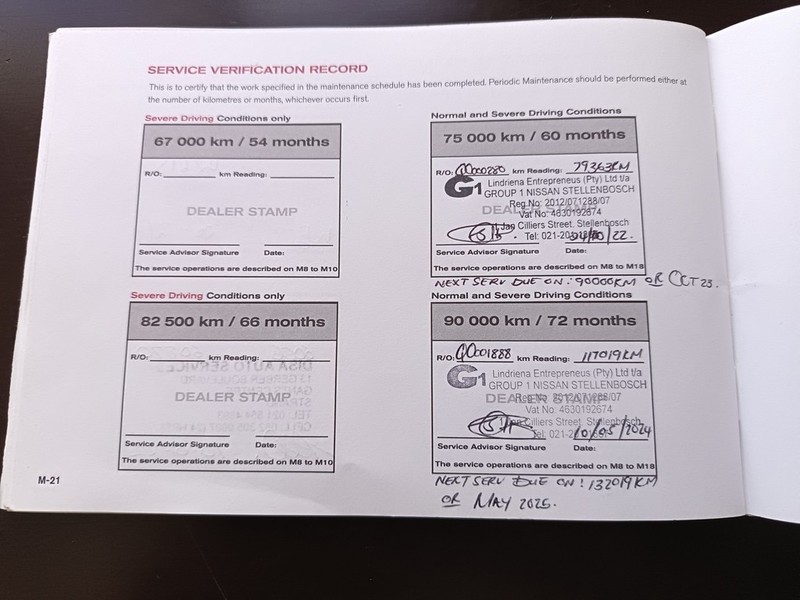 SERVICE VERIFICATION RECORD
This is to certify that the work specified in the maintenance schedule has been completed. Periodic Maintenance should be performed either at
the number of kilometres or months, whichever occurs first.
Severe Driving Conditions only
67 000 km / 54 months
R/O: km Reading:
DEALER STAMP
Service Advisor Signature Date:
The service operations are described on M8 to M10
Normal and Severe Driving Conditions
75 000 km / 60 months
R/O: 00000280 km Reading: 79363KM
G1 Lindriena Entrepreneus (Pty) Ltd t/a
GROUP 1 NISSAN STELLENBOSCH
Reg.No: 2012/071288/07
DEALER STAMP
Vat No: 4630192674
1 Jan Cilliers Street, Stellenbosch
Tel: 021-20
/22.
Service Advisor Signature Date:
The service operations are described on M8 to M18
NEXT SERV DUE ON: 90000KM OR OCT 23.
Severe Driving Conditions only
82 500 km / 66 months
R/O: km Reading:
DEALER STAMP
Service Advisor Signature Date:
The service operations are described on M8 to M10
Normal and Severe Driving Conditions
90 000 km / 72 months
R/O: 00001888 km Reading: 117019KM
G1 Lindriena Entrepreneus (Pty) Ltd t/a
GROUP 1 NISSAN STELLENBOSCH
DEALER STAMP
Reg.No: 2012/071288/07
Vat No: 4630192674
1 Jan Cilliers Street, Stellenbosch
Tel: 021-2
10/05/2024
Service Advisor Signature Date:
The service operations are described on M8 to M18
NEXT SERV DUE ON: 132019KM
OR MAY 2025.
M-21